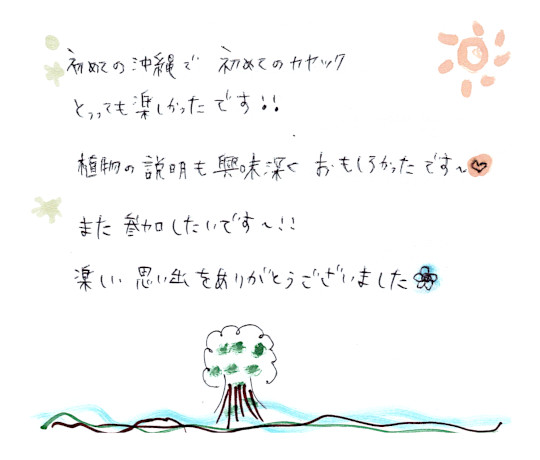 初めての沖縄で 初めてのカヤック
とっっても楽しかったです!!
植物の説明も興味深く おもしろかったです~♡
また参加したいです~!!
楽しい思い出をありがとうございました